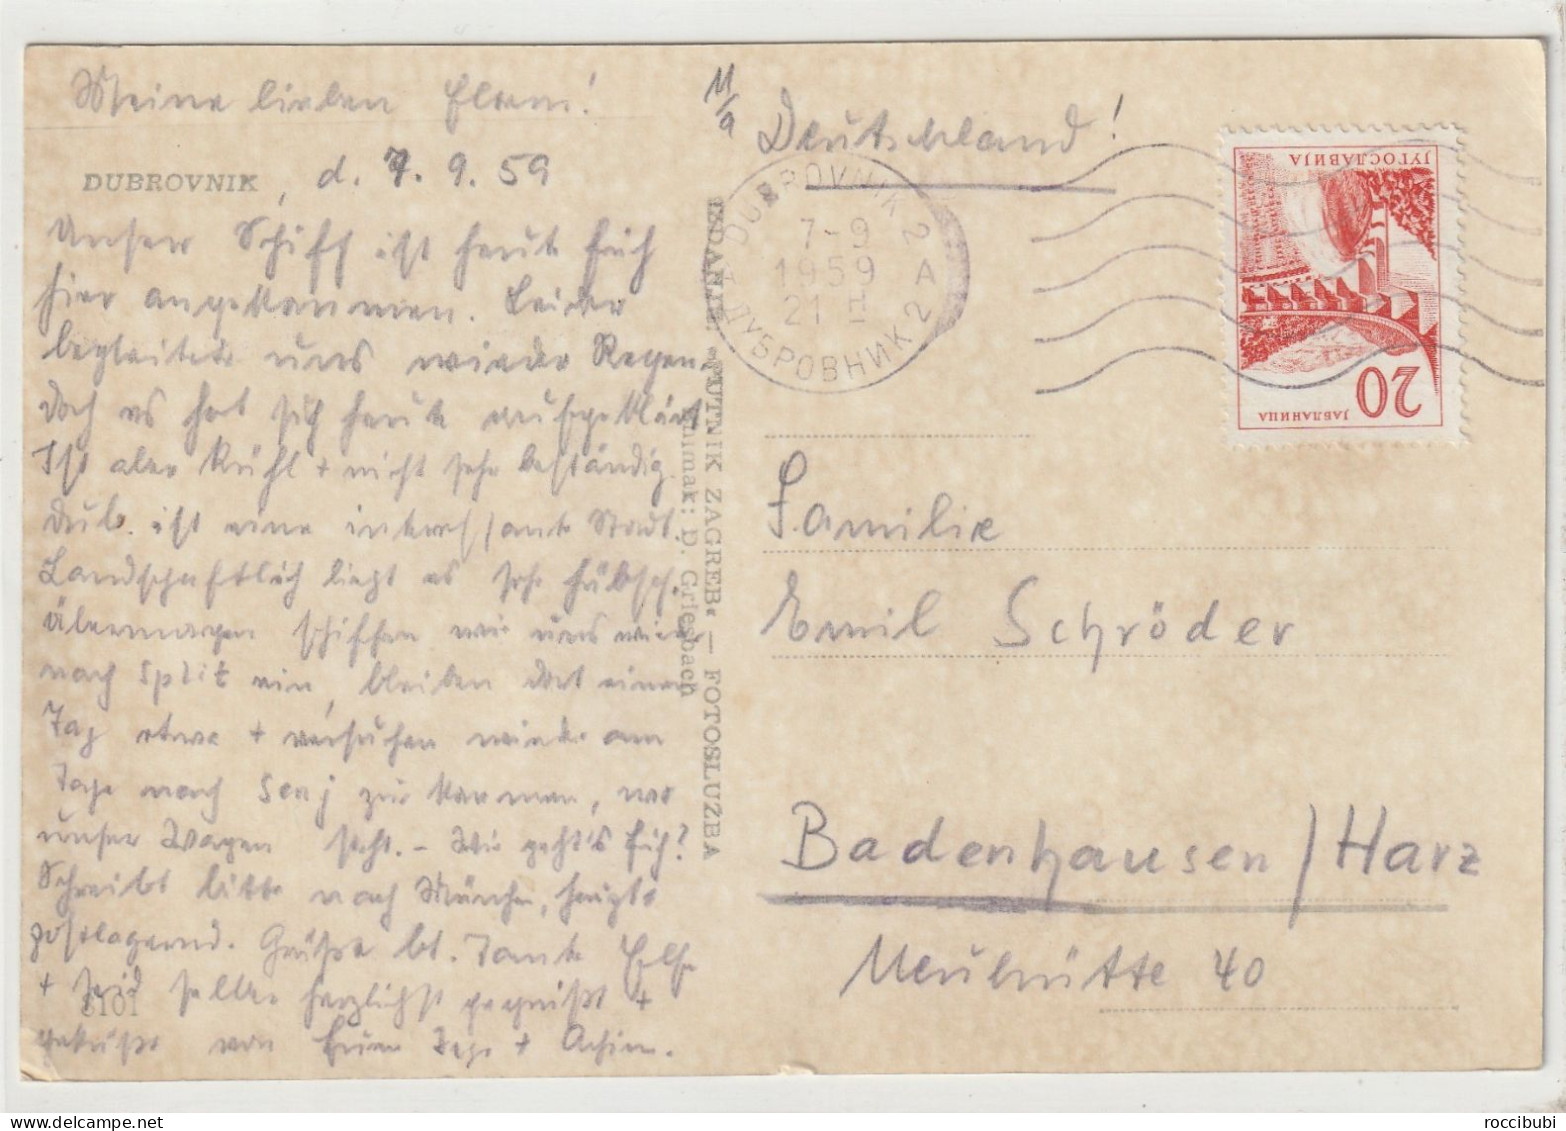 Meine lieben Eltern!
DUBROVNIK, d. 7. 9. 59
Unser Schiff ist heute früh
hier angekommen. Leider
begleitete uns wieder Regen
doch es hat sich heute aufgeklärt
Ist aber kühl + nicht sehr beständig.
Dub. ist eine interessante Stadt.
Landschaftlich liegt es sehr hübsch.
Übermorgen schiffen wir uns wieder
nach Split ein, bleiben dort einen
Tag etwa + versuchen wieder am
Tage nach Senj zu kommen, wo
unser Wagen steht. - Wie geht's Euch?
Schreibt bitte nach München,
postlagernd. Grüße bt. Tante Else
+ seid selber herzlichst gegrüßt +
geküßt von Euren + Achim.
8101
11/9
IZDANJE: „PUTNIK ZAGREB“ — FOTOSLUZBA
Snimak: D. Griesbach
Deutschland!
DUBROVNIK 2
7-9
1959 A
21
ДУБРОВНИК 2
ЈУГОСЛАВИЈА
20
ЈАБЛАНИЦА
Familie
Emil Schröder
Badenhausen/Harz
Neuhütte 40
roccibubi